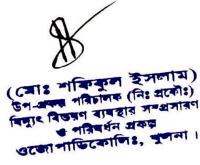 (মোঃ শফিকুল ইসলাম)
উপ-প্রকল্প পরিচালক (নিঃ প্রকৌঃ)
বিদ্যুৎ বিতরণ ব্যবস্থার সম্প্রসারণ
ও পরিবর্ধন প্রকল্প
ওজোপাডিকোলিঃ, খুলনা।